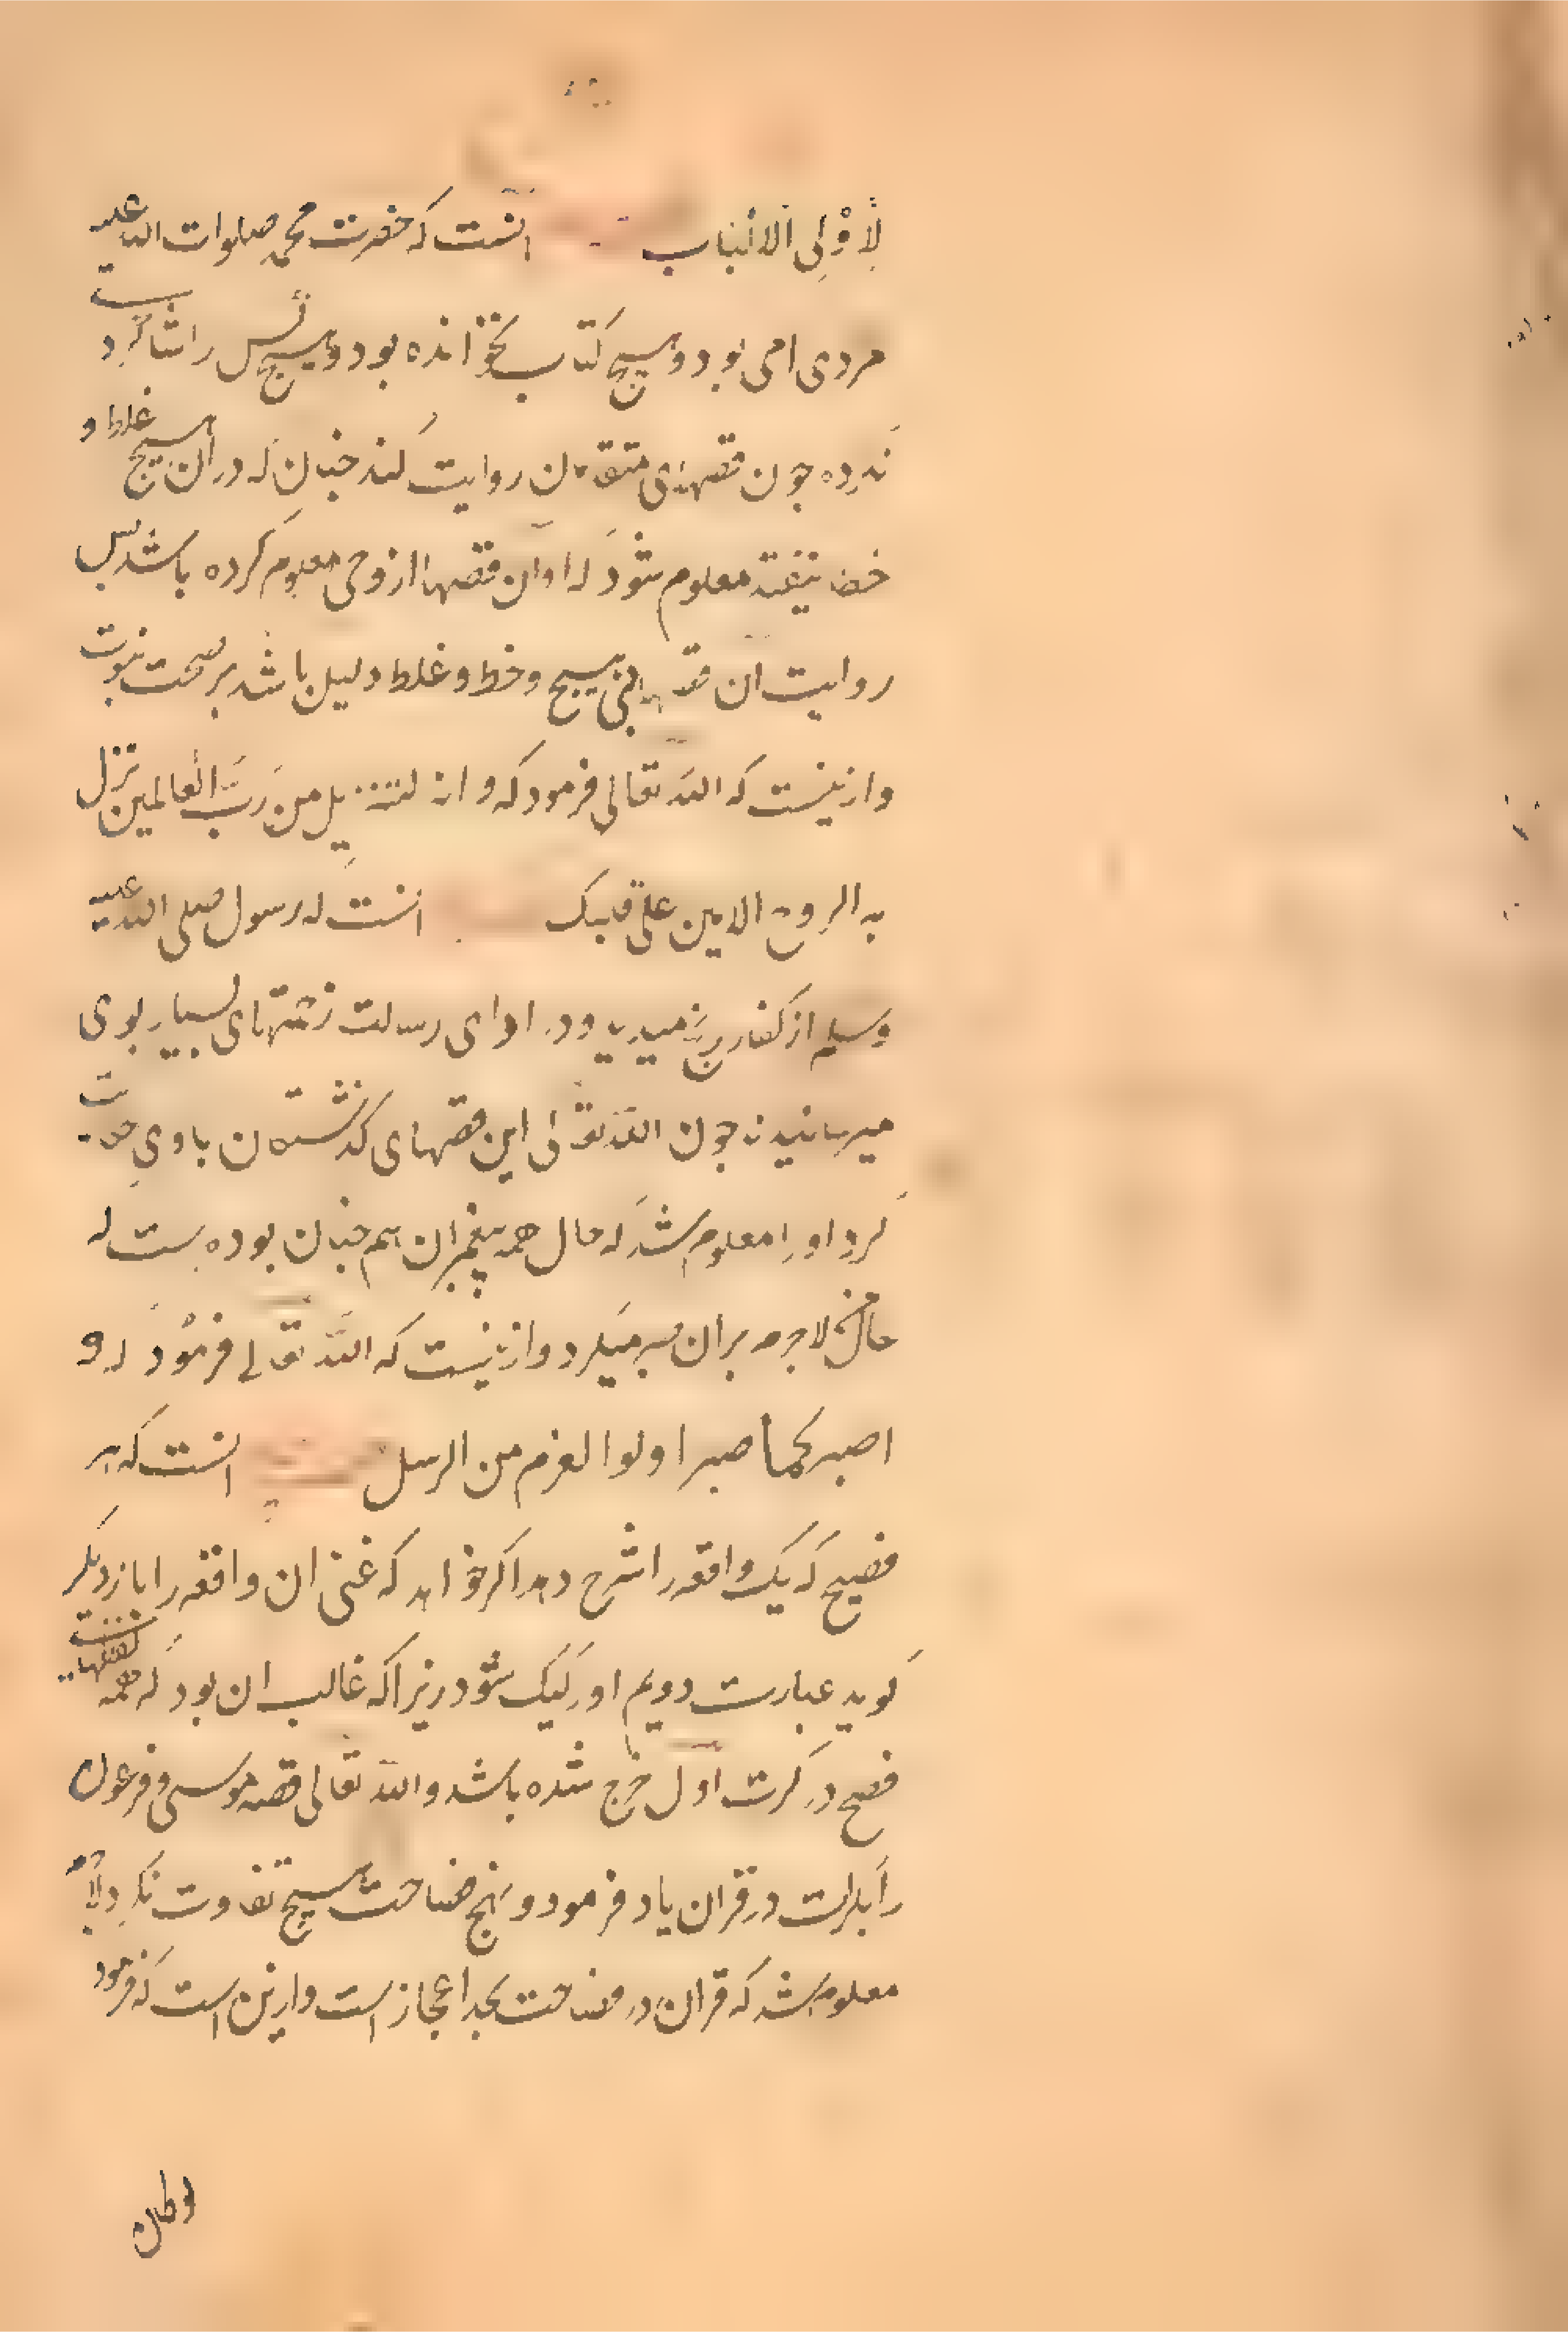 لأولی الالباب انست که حضرت محمد صلوات الله علیه
مردی امی بود و هیچ کتاب نخوانده بود و هیچ کس را شاکردی
نکرده چون قصهای متقدمان روایت کند چنان که در آن هیچ غلط و
خطا نیفتد معلوم شود که او ان قصها از وحی معلوم کرده باشد پس
روایت ان قصها بی هیچ خط و غلط دلیل باشد بر صحت نبوت
و ازینست که الله تعالی فرمود که و انه لتنزیل من رب العالمین نزل
به الروح الامین علی قلبک انست که رسول صلی الله علیه
وسلم از کفار رنج میدید و در ادای رسالت زحمتهای بسیار بوی
میرسانیدند چون الله تعالی این قصهای کذشتکان با وی حکایت
کرد او را معلوم شد که حال همه پیغمبران هم چنان بوده است که
حال لاجرم بران صبر میکرد و ازینست که الله تعالی فرمود که و
اصبر کما صبر اولوا العزم من الرسل انست که هر
فصیح که یک واقعه را شرح دهد اکر خواهد که عین ان واقعه را باز دیکر
کوید عبارت دویم او رکیک شود زیرا که غالب ان بود که همه لفظهای
فصیح در کرت اول خرج شده باشد و الله تعالی قصه موسی و فرعون
را بکرات در قران یاد فرمود و هیچ فصاحت هیچ تفاوت نکرد لا
معلوم شد که قران در فصاحت بحد اعجاز است و ازین است که فرمود
لوکان